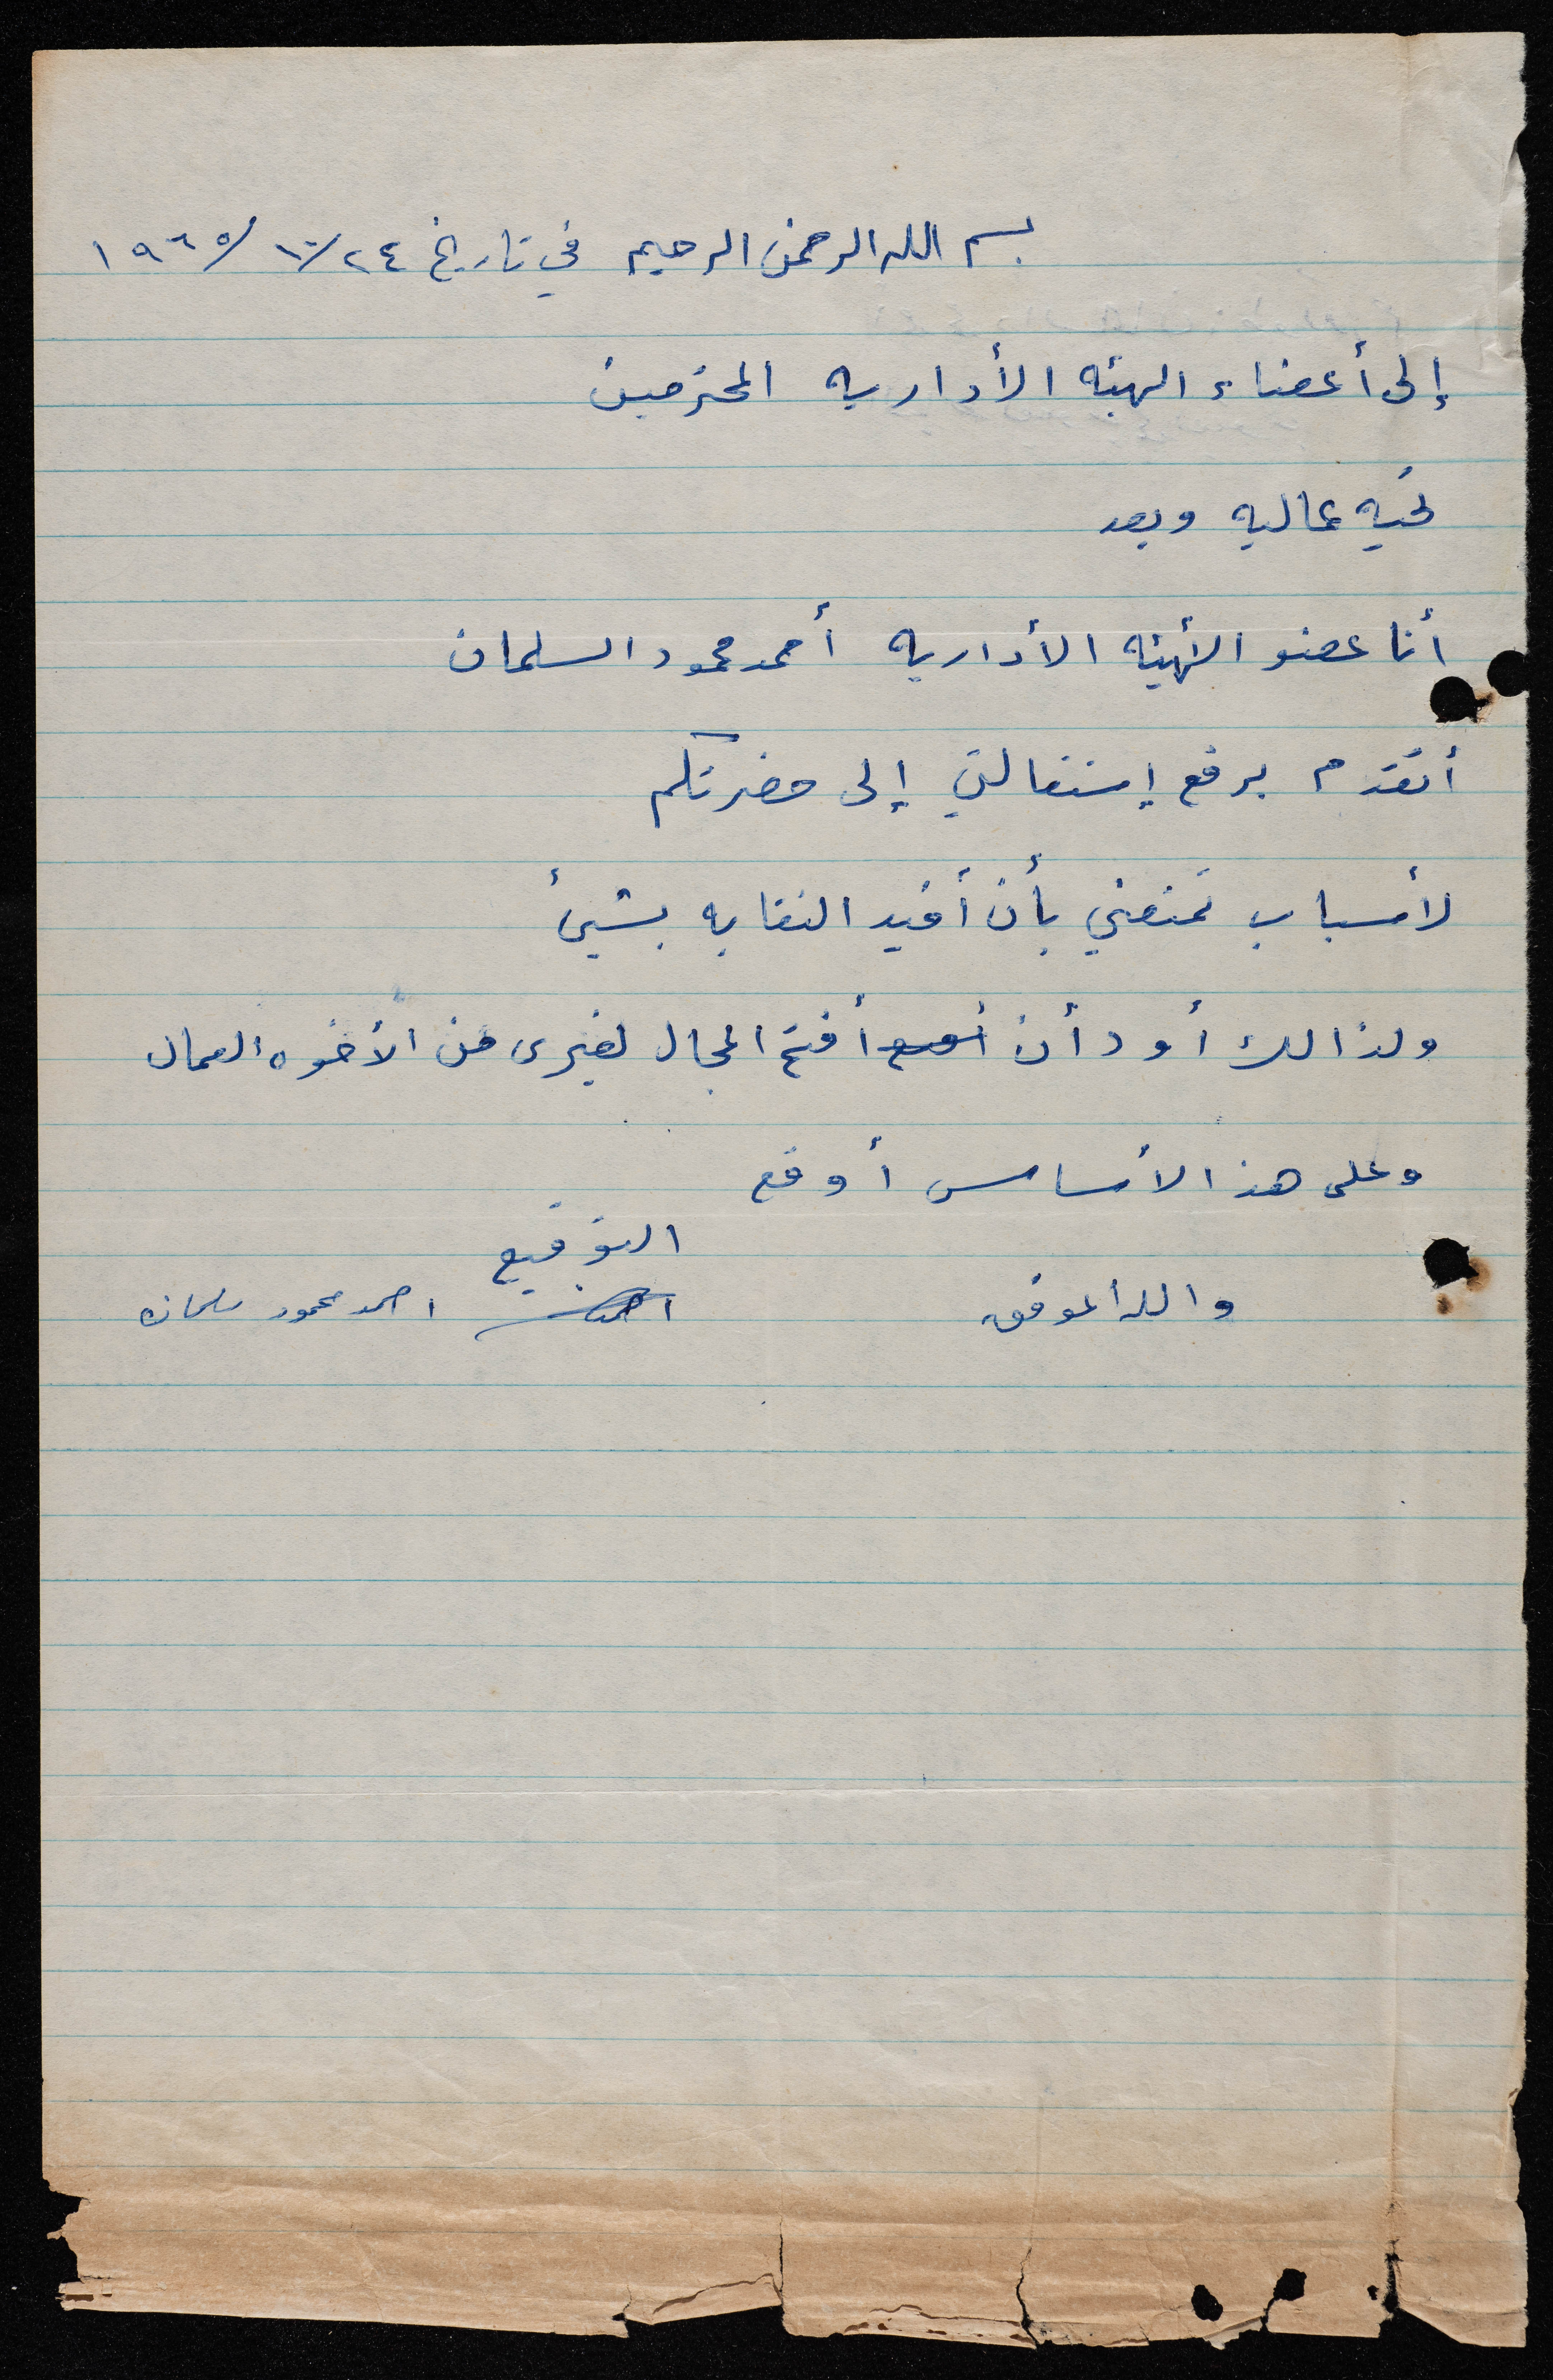 بسم الله الرحمن الرحيم في تاريخ ٢٤/١٠/١٩٦٥
إلى أعضاء الهيئه الأداريه المحترمين
تحيه عماليه وبعد
أنا عضو الهيئه الأداريه أحمد محمود السلمان
أتقدم برفع إستقالتي إلى حضرتكم
لأسباب تمنعني بأن أفيد النقابه بشيئ
ولذالك أود أن أفتح المجال لغيرى من الأخوه العمال
وعلى هذا الأساس أوقع
التوقيع
والله الموفق احمد محمود سلمان